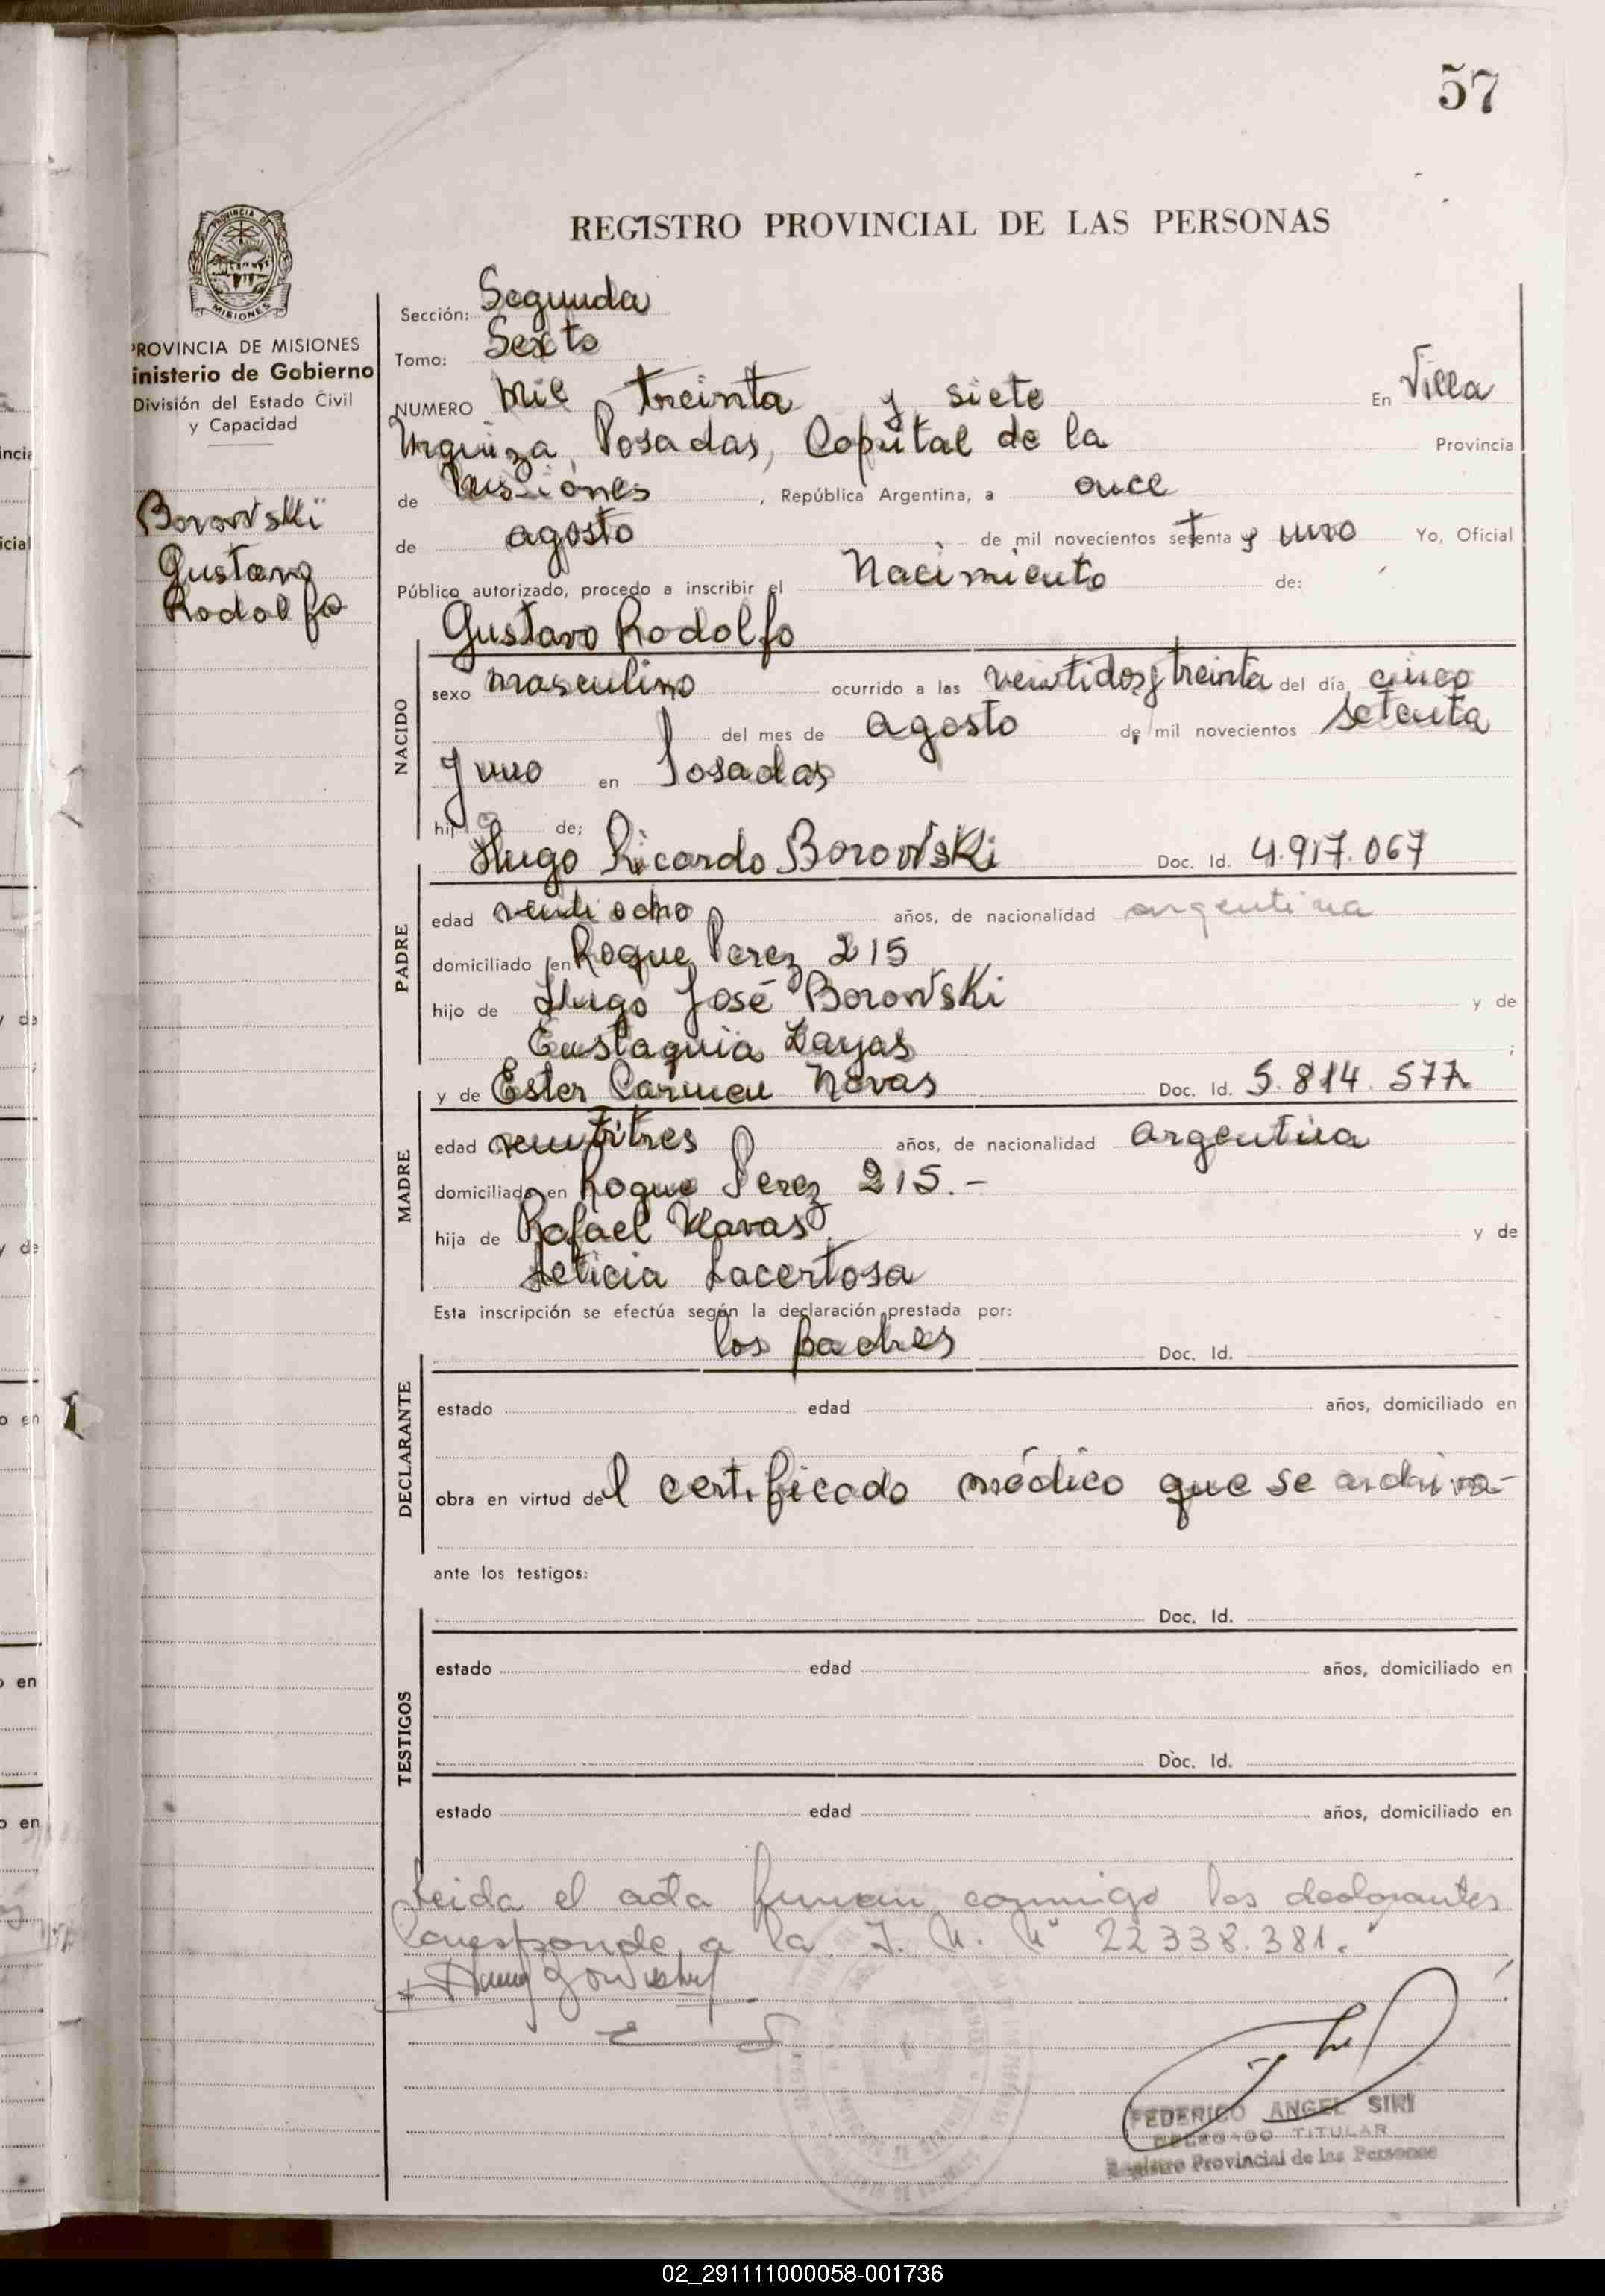 57
REGISTRO PROVINCIAL DE LAS PERSONAS
PROVINCIA DE
MISIONES
PROVINCIA DE MISIONES
inisterio de Gobierno
División del Estado Civil
y Capacidad
Borowski
Gustavo
Rodolfo
Sección: Segunda
Tomo: Sexto
NUMERO Mil treinta y siete En Villa
Urquiza, Posadas, Capital de la Provincia
de Misiones, República Argentina, a once
de agosto de mil novecientos setenta y uno Yo, Oficial
Público autorizado, procedo a inscribir el Nacimiento de:
Gustavo Rodolfo
NACIDO
sexo masculino ocurrido a las veintidos y treinta del día cinco
del mes de agosto de mil novecientos setenta
y uno en Posadas
hijo de;
Hugo Ricardo Borowski Doc. Id. 4.917.067
PADRE
edad veintiocho años, de nacionalidad argentina
domiciliado en Roque Perez 215
hijo de Hugo José Borowski y de
Eustaquia Zayas ;
y de Ester Carmen Navas Doc. Id. 5.814.577
MADRE
edad veintitres años, de nacionalidad argentina
domiciliada en Roque Perez 215.-
hija de Rafael Navas y de
Leticia Lacertosa
Esta inscripción se efectúa según la declaración prestada por:
los padres Doc. Id.
DECLARANTE
estado edad años, domiciliado en
obra en virtud del certificado médico que se archiva-
ante los testigos:
Doc. Id.
TESTIGOS
estado edad años, domiciliado en
Doc. Id.
estado edad años, domiciliado en
Leida el acta firman conmigo los declarantes
Corresponde a la I. N. Nº 22338.381.
FEDERICO ANGEL SIRI
DELEGADO TITULAR
Registro Provincial de las Personas
02_291111000058-001736